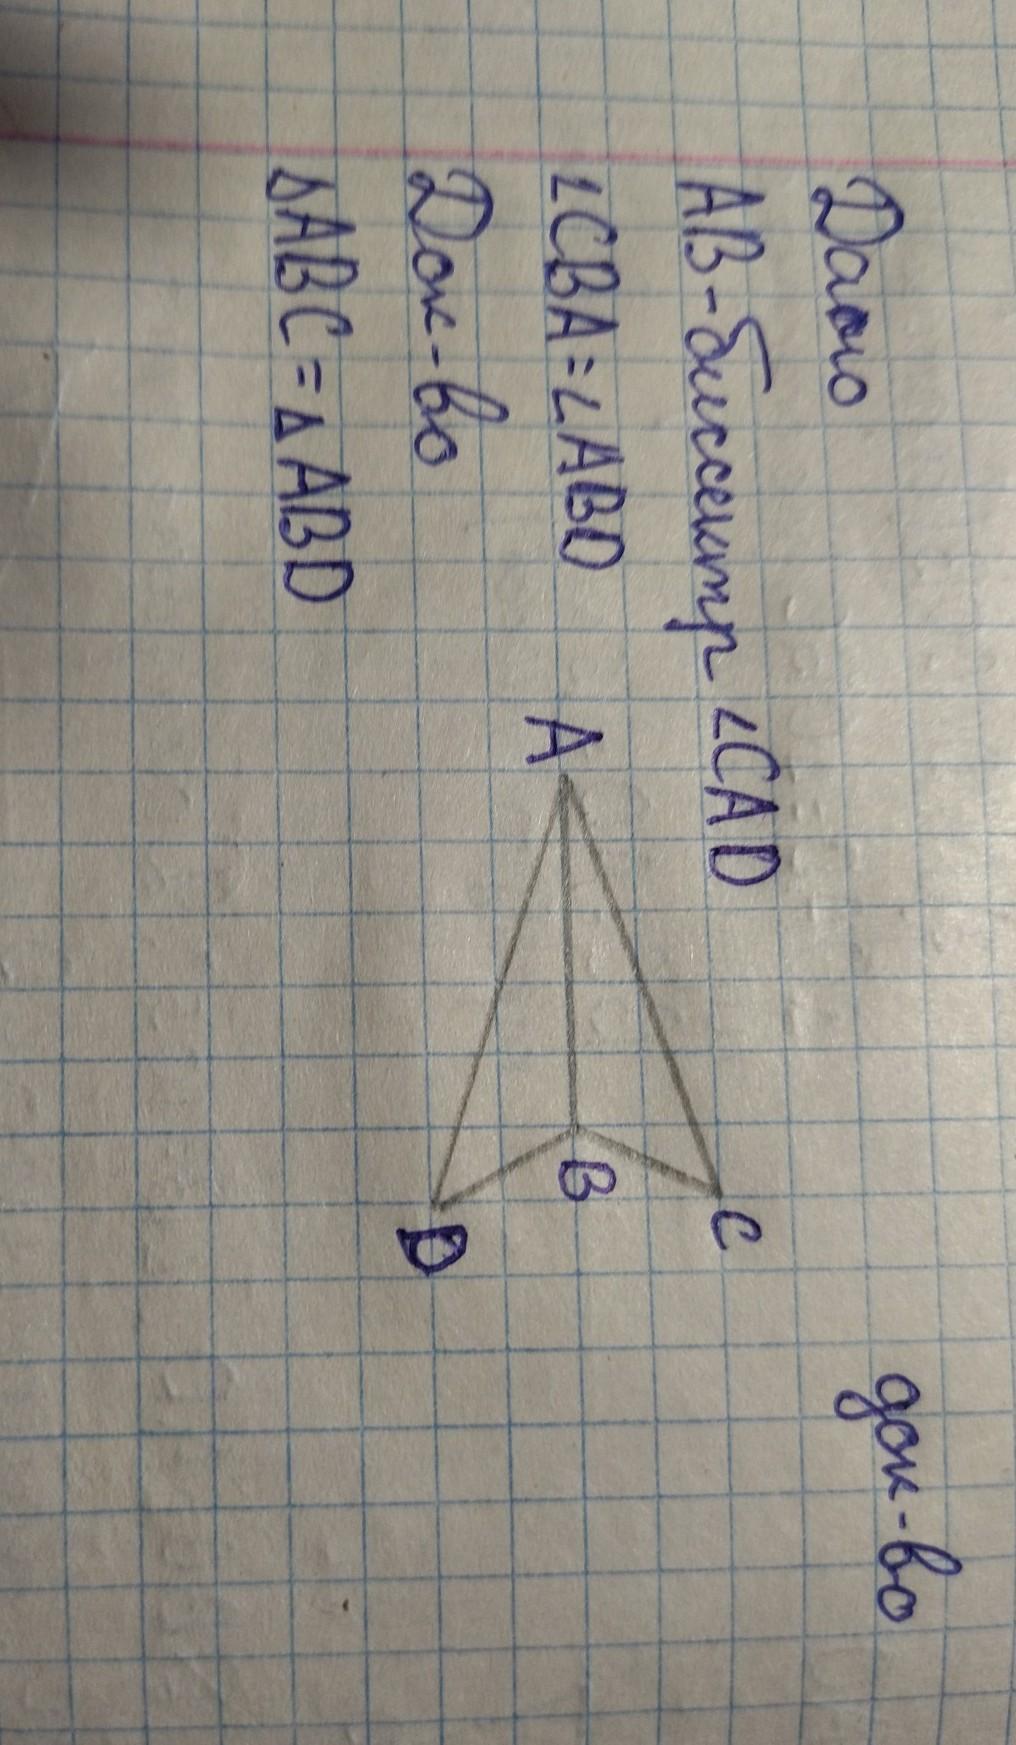 Дано
АВ-биссектр ∠CAD
∠CBA=∠ABD
Док-во
ΔABC=ΔABD
A
B
C
D
док-во